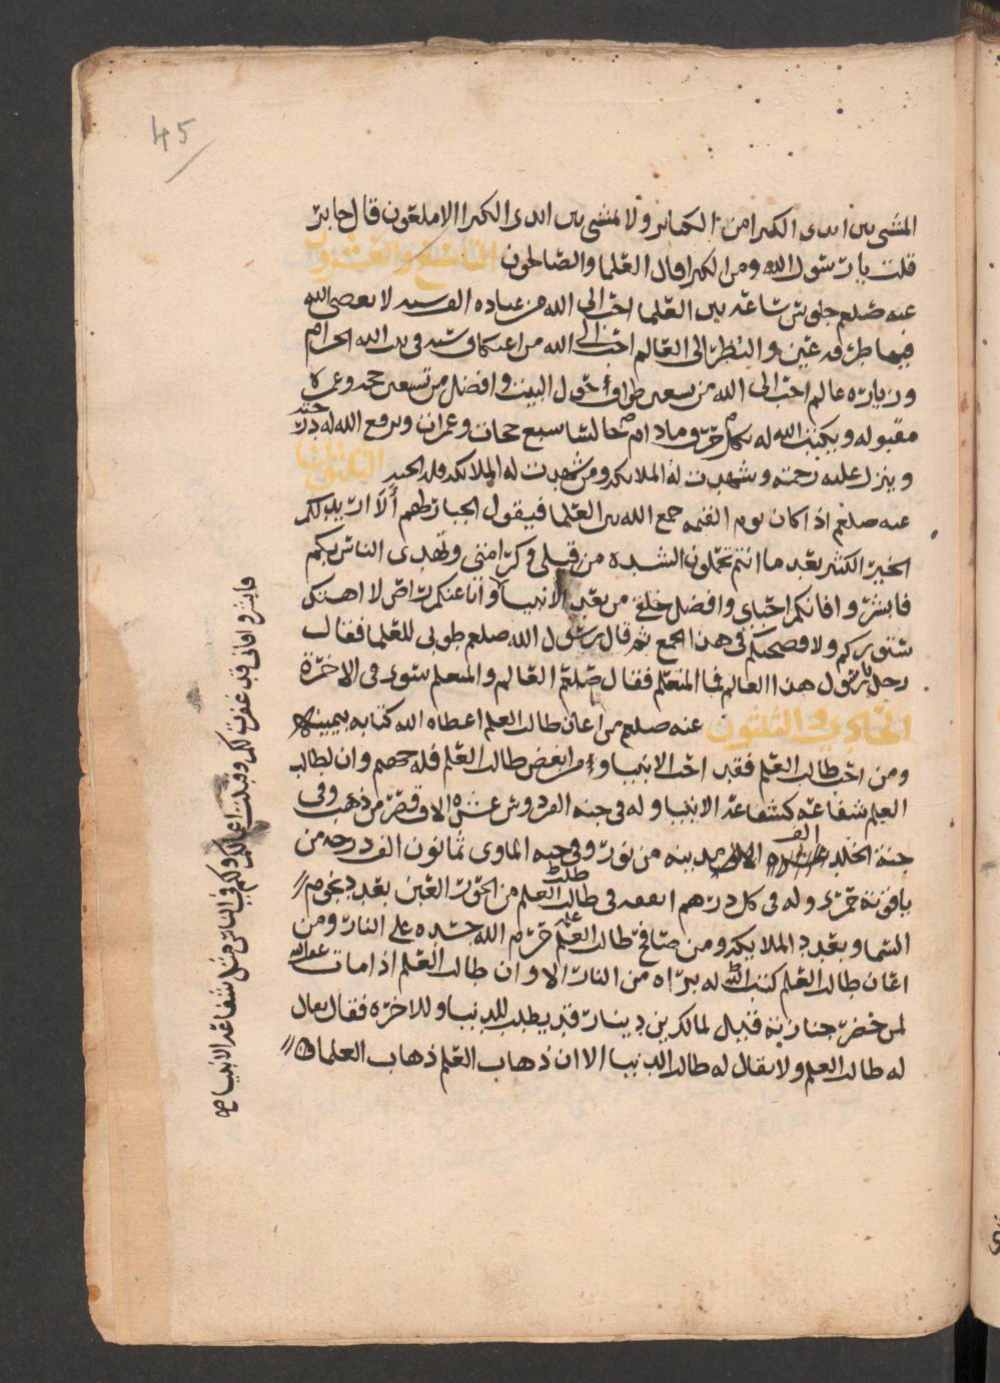 45
المشي بين ايدي الكبرا من الكباير ولا يمشي بين ايدي الكبرا الا ملعون قال جابر
قلت يا رسول الله ومن الكبرا قال العلما والصالحون التاسع والعشرون
عنه صلعم جلوس ساعة بين العلما احب الى الله من عبادة الف سنه لا يعصى الله
فيها طرفة عين والنظر الى العالم احب الى الله من اعتكاف سنه في بيت الله الحرام
وزيارة عالم احب الى الله من سبعين طوافا حول البيت وافضل من تسعين حجه وعمره
مقبوله ويكتب الله له بكل حرف وما دام جالسا سبع حجات وعمرات ويرفع الله له درجته
وينزل عليه رحمته وشهدت له الملايكه ومن شهدت له الملايكه فله الجنه الثلثون
عنه صلعم اذا كان يوم القيمه جمع الله بين العلما فيقول الجبار لهم ألا اريد لكم
الخير الكثير بعد ما انتم تحملون الشده من قبلي وكرامتي وتهدي الناس بكم
فابشروا فانكم احبابي وافضل خلقي من بعد الانبيا وانا عنكم راض لا اهتك
ستوركم ولا فضحتكم في هذا الجمع ثم قال رسول الله صلعم طوبى للعلما فقال
رجل يا رسول هذا العالم فما المتعلم فقال صلعم العالم والمتعلم سوى في الاخرة
الحادي والثلثون عنه صلعم من اعان طالب العلم اعطاه الله كتابه بيمينه
ومن احب طالب العلم فقد احب الانبيا ومن ابغض طالب العلم فله جهنم وان لطالب
العلم شفاعة كشفاعة الانبيا وله في جنة الفردوس عشرة الاف قصر من ذهب وفي
جنة الخلد الف مدينه من نور وفي جنه الماوى ثمانون الف درجه من
ياقوتة حمرى وله في كل درهم انفقه في طلب العلم من الحور العين بعدد نجوم
السما وبعدد الملايكه ومن صافح طالب العلم حرم الله جسده على النار ومن
اعان طالب العلم كتب الله له براه من النار الا وان طالب العلم اذا مات غفر الله
لمن حضر جنازته فقيل لمالك بن دينار قد يطلب للدنيا وللاخره فقال يقال
له طالب العلم ولا يقال له طالب الدنيا الا ان ذهاب العلم ذهاب العلما
فابشروا فاني قد غفرت لكم وقبلت اعمالكم ولكم في الناس مثل شفاعة الانبيا صح